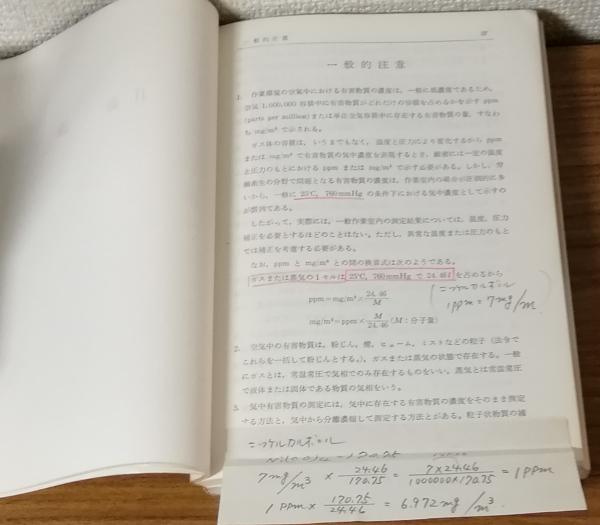 一般的注意
37
一般的注意
1. 作業環境の空気中における有害物質の濃度は，一般に低濃度であるため，
空気 1,000,000 容積中に有害物質がどれだけの容積を占めるかを示す ppm
(parts per million) または単位空気容積中に存在する有害物質の量，すなわ
ち mg/m³ で示される。
ガス体の容積は，いうまでもなく，温度と圧力により変化するから ppm
または mg/m³ で有害物質の気中濃度を表現するとき，厳密には一定の温度
と圧力のもとにおける ppm または mg/m³ で示す必要がある。しかし，労
働衛生の分野で問題となる有害物質の濃度は，作業室内の場合が圧倒的に多
いから，一般に 25℃，760 mmHg の条件下における気中濃度として示すの
が慣例である。
したがって，実際には，一般作業室内の測定結果については，温度，圧力
補正を必要とするほどのことはない。ただし，異常な温度または圧力のもと
では補正を考慮する必要がある。
なお，ppm と mg/m³ との間の換算式は次のようである。
ガスまたは蒸気の1モルは 25℃，760 mmHg で 24.46 l を占めるから
ppm＝mg/m³× 24.46/M
mg/m³＝ppm× M/24.46 (M：分子量)
ニッケルカルボニル
1ppm = 7mg/m
2. 空気中の有害物質は，粉じん，煙，ヒューム，ミストなどの粒子（法令で
これらを一括して粉じんとする。），ガスまたは蒸気の状態で存在する。一般
にガスとは，常温常圧で気相でのみ存在するものをいい，蒸気とは常温常圧
で液体または固体である物質の気相をいう。
3. 気中有害物質の測定には，気中に存在する有害物質の濃度をそのまま測定
する方法と，気中から分離濃縮して測定する方法とがある。粒子状物質の捕
ニッケルカルボニル
7mg/m³ × 24.46/170.75 = 7×24.46/1000000×170.75 = 1ppm
1ppm × 170.75/24.46 = 6.972mg/m³